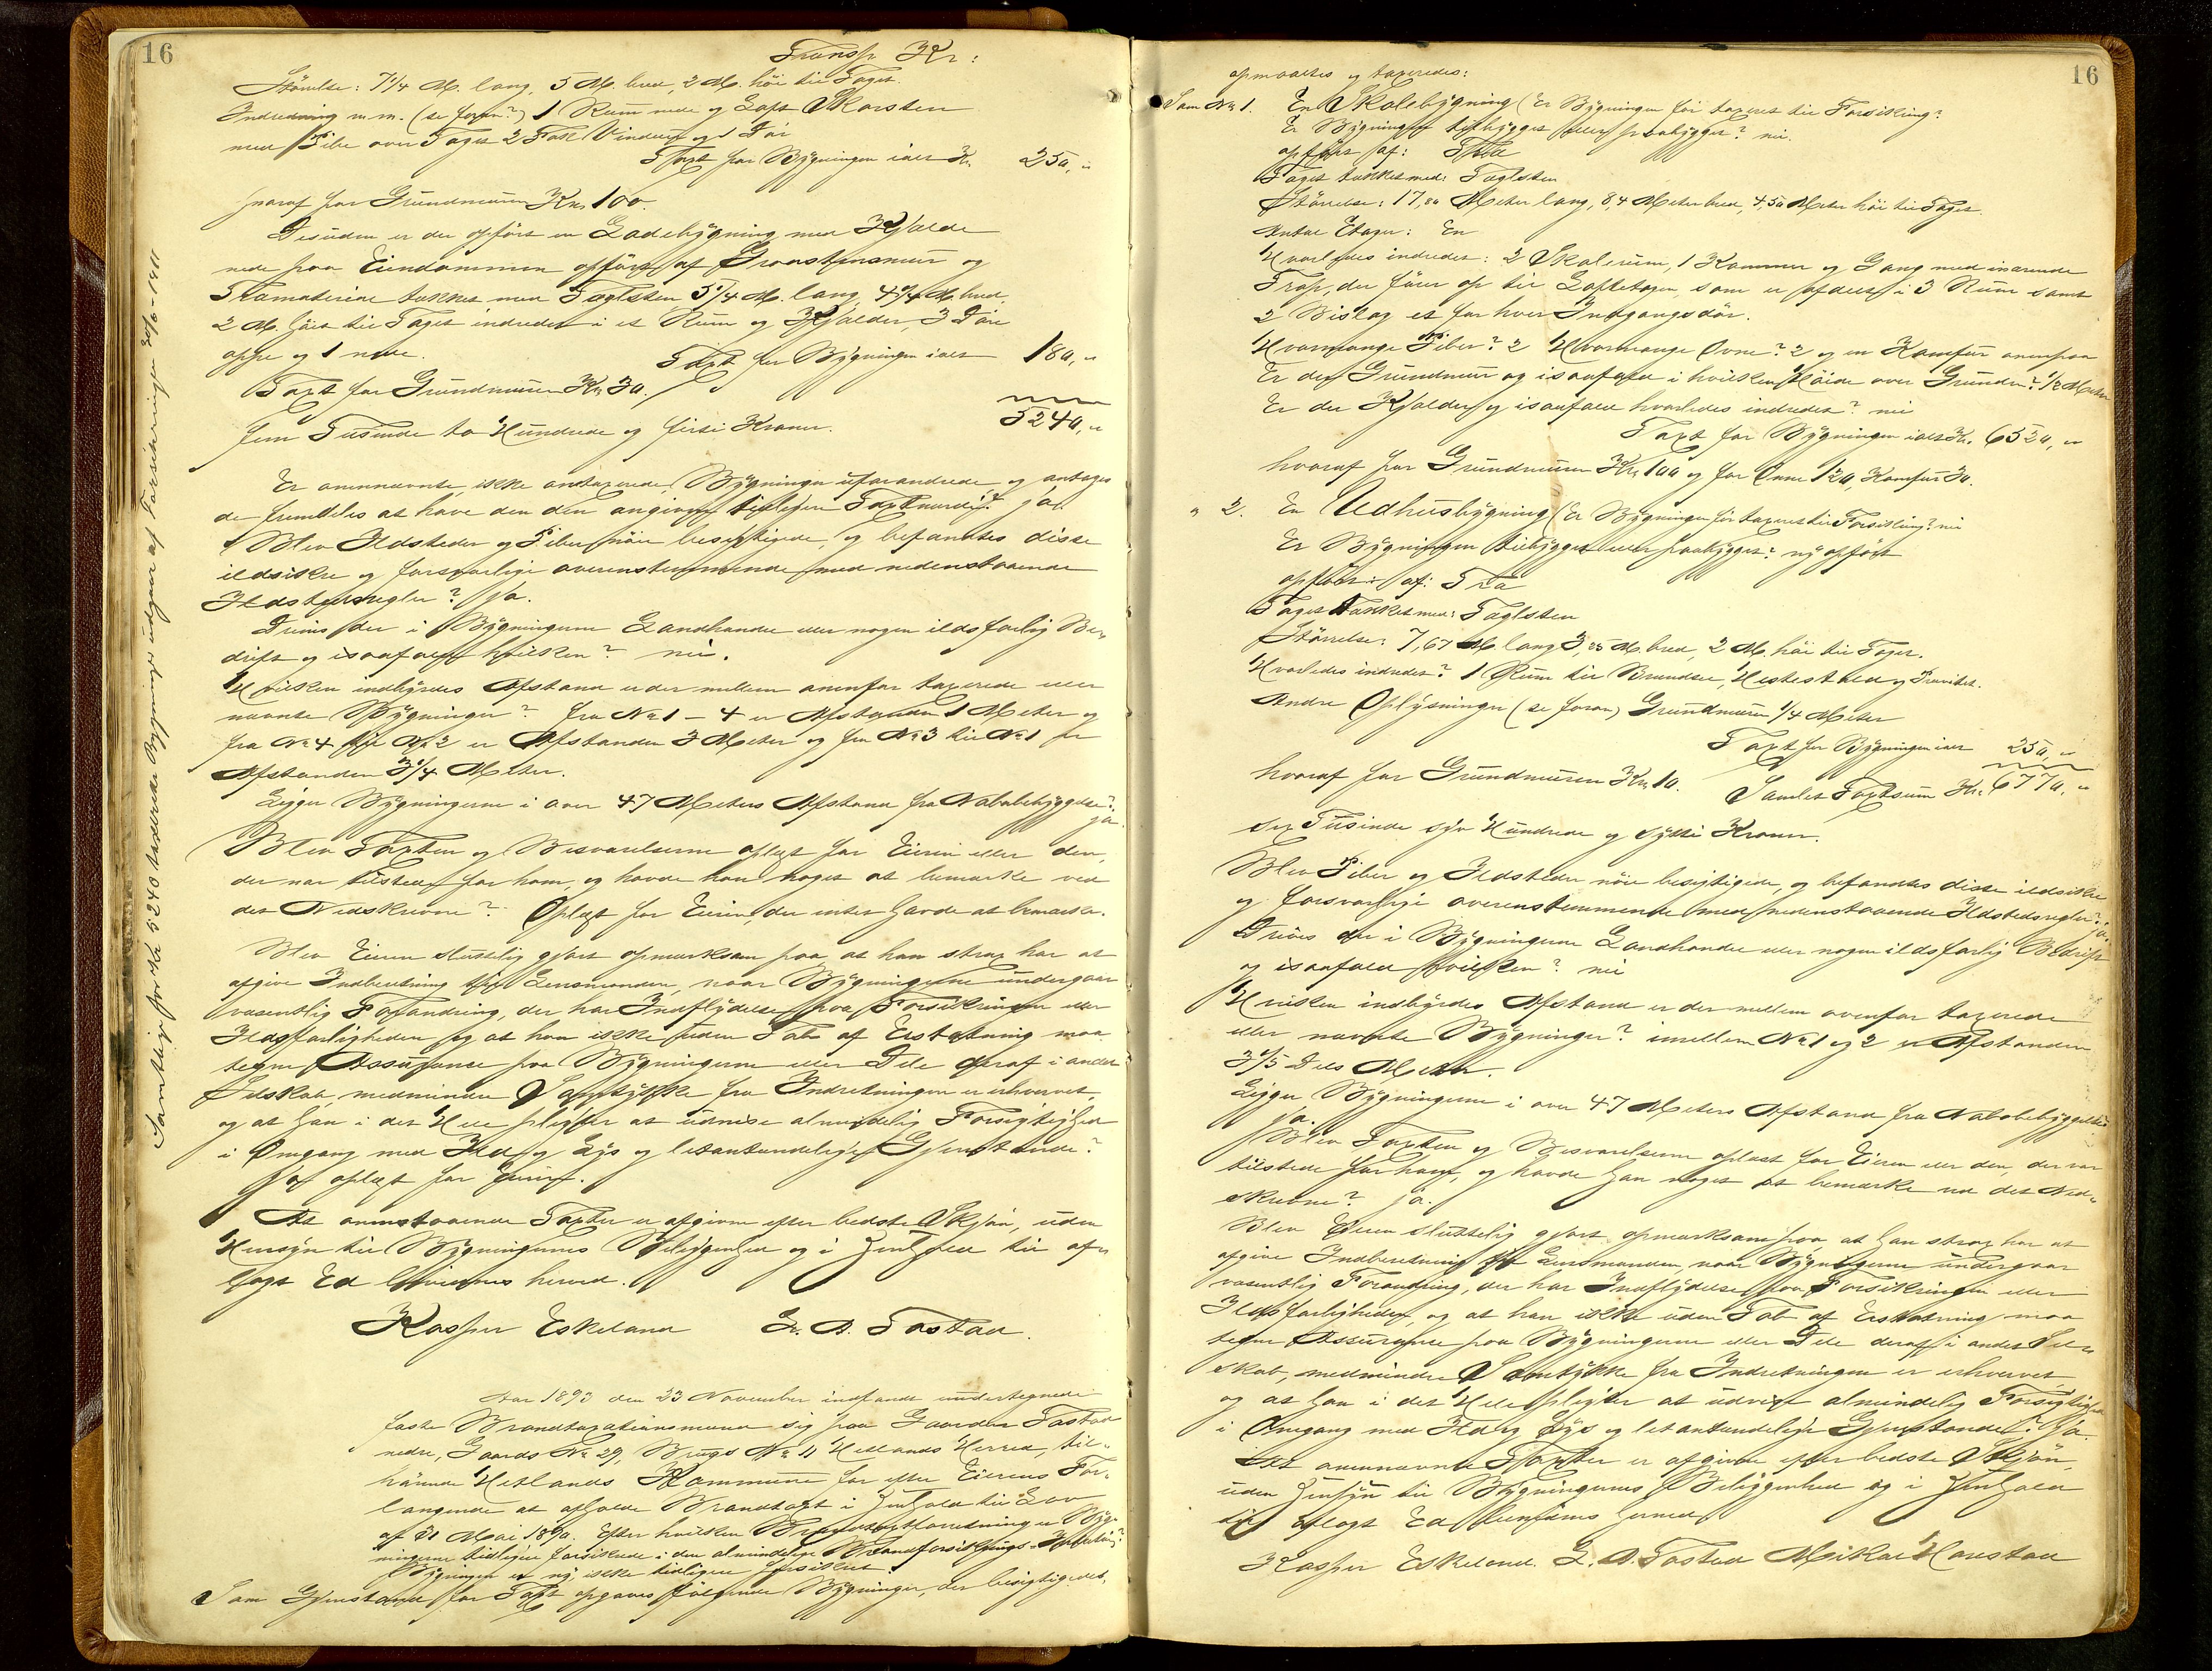 16
Transp Kr:
Störrelse: 7 1/4 M. lang, 5 M. bred, 2 M. höi til Taget.
Indredning m.m. (se foran?) 1 Rum nede og Loft Skorsten
med Pibe over Taget 2 Fak Vinduer og 1 Dör
Taxt for Bygningen ialt Kr. 250,"
hvoraf for Grundmuren Kr. 100.
Desuden er der opfört en Ladebygning med Kjælder
nede paa Eiendommen opfört af Graastensmur og
Træmateriale tækket med Taglsten 5 1/4 M. lang, 4 1/4 M. bred,
2 M. höi til Taget indredet i et Rum og Kjælder, 3 Döre
oppe og 1 nede. Taxt for Bygningen ialt 180,"
Taxt for Grundmuren Kr. 30.
5240,"
fem Tusinde to Hundrede og firti Kroner.
Er ovennævnte, ikke omtaxerede Bygninger uforandrede og antages
de fremdeles at have den dem angivne tidligere Taxtværdi? ja.
Blev Ildsteder og Piber nöie besigtigede, og befandtes disse
ildsikre og forsvarlige overensstemmende med nedenstaaende
Ildstedsregler? Ja.
Drives der i Bygningerne Landhandel eller nogen ildsfarlig Be-
drift og isaafald hvilken? nei.
Hvilken indbyrdes Afstand er der mellem ovenfor taxerede eller
nævnte Bygninger? fra No 1 – 4 er Afstanden 1 Meter og
fra No 4 til No 2 er Afstanden 3 Meter og fra No 3 til No 1 er
Afstanden 3 1/4 Meter.
Ligger Bygningerne i over 47 Meters Afstand fra Nabobebyggelse?
ja.
Blev Taxten og Besvarelserne oplæst for Eieren eller den,
der var tilstede for ham, og havde han noget at bemærke ved
det Nedskrevne? Oplæst for Eieren, der intet havde at bemærke.
Blev Eieren sluttelig gjort opmærksom paa, at han strax har at
afgive Indberetning til Lensmanden, naar Bygningerne undergaar
væsentlig Forandring, der har Indflydelse paa Forsikringen eller
Ildsfarligheden og at han ikke uden Tab af Erstatning maa
tegne Assurance paa Bygningerne eller Dele deraf i andet
Selskab, medmindre Samtykke fra Indretningen er erhvervet,
og at han i det Hele pligter at udvise almindelig Forsigtighed
i Omgang med Ild og Lys og letantændelige Gjenstande?
Ja oplæst for Eieren.
At ovenstaaende Taxter er afgivne efter bedste Skjön, uden
Hensyn til Bygningernes Beliggenhed og i Henhold til af-
lagt Ed bevidnes herved.
Kasper Eskeland L. A. Tastad.
Aar 1893 den 23 November indfandt undertegnede
faste Brandtaxationsmænd sig paa Gaarden Tastad
nedre, Gaards No 29, Brugs No 11 Hetlands Herred, til-
hörende Hetlands Kommune for efter Eierens For-
langende at afholde Brandtaxt i Henhold til Lov
af 31 Mai 1890. Efter hvilken Brandtaxtforretning er Byg-
ningerne tidligere forsikrede i den almindelige Brandforsikrings-Indretning?
Bygningen er ny ikke tidligere forsikret.
Som Gjenstand for Taxt opgaves fölgende Bygninger, der besigtigedes,
Samtlige for Kr 5240 taxerede Bygninger udgaar af Forsikringen 30/6-1911
16
opmaaltes og taxeredes:
Som No 1. En Skolebygning (Er Bygningen för taxeret til Forsikring?
Er Bygningen tilbygget eller paabygget? nei.
opfört af: Træ
Taget tækket med: Taglsten
Störrelse: 17,80 Meter lang, 8,4 Meter bred, 4,50 Meter höi til Taget.
Antal Etager: En
Hvorledes indredet: 2 Skolerum, 1 Kammer og Gang med inværende
Trap, der förer op til Loftetagen, som er afdelt i 3 Rum samt
2 Bislag et for hver Indgangsdör.
Hvormange Piber? 2 Hvormange Ovne? 2 og en Komfur ovenpaa
Er der Grundmur og isaafald i hvilken Höide over Grunden? 1/2 Meter
Er der Kjælder og isaafald hvorledes indredet? nei
Taxt for Bygningen ialt Kr. 6520,"
hvoraf for Grundmuren Kr. 100 og for Ovne 120, Komfur 30.
" 2. En Udhusbygning (Er Bygningen för taxeret til Forsikring? nei
Er Bygningen tilbygget eller paabygget? ny opfört
opfört af: Træ
Taget tækket med: Taglsten
Störrelse: 7,67 M. lang 3,35 M. bred, 2 M. höi til Taget.
Hvorledes indredet? 1 Rum til Brændsel, Hestestald og Privitet.
Andre Oplysninger (se foran) Grundmuren 1/4 Meter
Taxt for Bygningen ialt 250,"
hvoraf for Grundmuren Kr. 10. Samlet Taxtsum Kr. 6770,"
sex Tusinde syv Hundrede og sytti Kroner.
Blev Piber og Ildsteder nöie besigtigede, og befandtes disse ildsikre
og forsvarlige overensstemmende med nedenstaaende Ildstedsregler? ja.
Drives der i Bygningerne Landhandel eller nogen ildsfarlig Bedrift
og isaafald hvilken? nei
Hvilken indbyrdes Afstand er der mellem ovenfor taxerede
eller nævnte Bygninger? imellem No 1 og 2 er Afstanden
3 1/5 Dels Meter.
Ligger Bygningerne i over 47 Meters Afstand fra Nabobebyggelse
Ja.
Blev Taxten og Besvarelserne oplæst for Eieren eller den, der var
tilstede for ham, og havde han noget at bemærke ved det Ned-
skrevne? ja.
Blev Eieren sluttelig gjort opmærksom paa, at han strax har at
afgive Indberetning til Lensmanden, naar Bygningerne undergaar
væsentlig Forandring, der har Indflydelse paa Forsikringen eller
Ildsfarligheden, og at han ikke uden Tab af Erstatning maa
tegne Assurance paa Bygningerne eller Dele deraf i andet Sel-
skab, medmindre Samtykke fra Indretningen er erhvervet
og at han i det Hele pligter at udvise almindelig Forsigtighed
i Omgang med Ild og Lys og letantændelige Gjenstande? Ja.
At ovennævnte Taxter er afgivne efter bedste Skjön,
uden Hensyn til Bygningernes Beliggenhed og i Henhold
til aflagt Ed bevidnes herved
Kasper Eskeland, L. A. Tastad Mikal Harestad